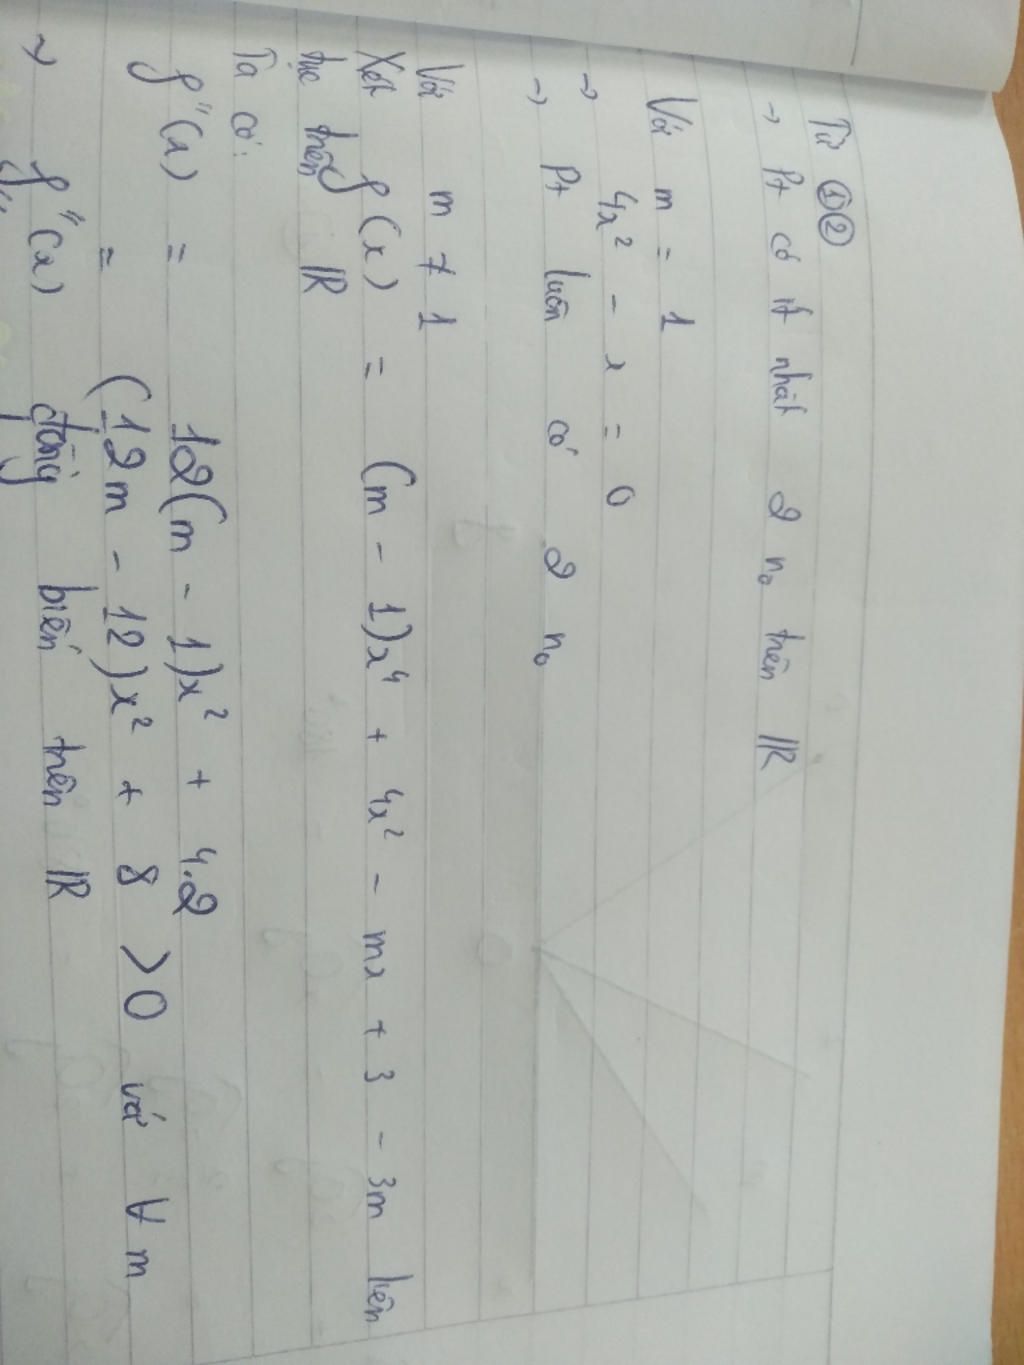 Từ ①②
→ Pt có ít nhất 2 n₀ trên ℝ
Với m = 1
→ 4x² - x = 0
→ Pt luôn có 2 n₀
Với m ≠ 1
Xét f(x) = (m - 1)x⁴ + 4x² - mx + 3 - 3m liên
tục trên ℝ
Ta có:
f''(x) = 12(m - 1)x² + 4.2
= (12m - 12)x² + 8 > 0 với ∀ m
→ f''(x) đồng biến trên ℝ